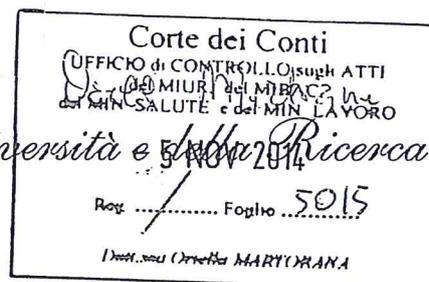 Corte dei Conti
UFFICIO di CONTROLLO sugli ATTI
del MIUR, del MIBAC,
del MIN SALUTE e del MIN LAVORO
versità e della Ricerca
5 NOV 2014
Reg. .............. Foglio ...5015
MARTORANA